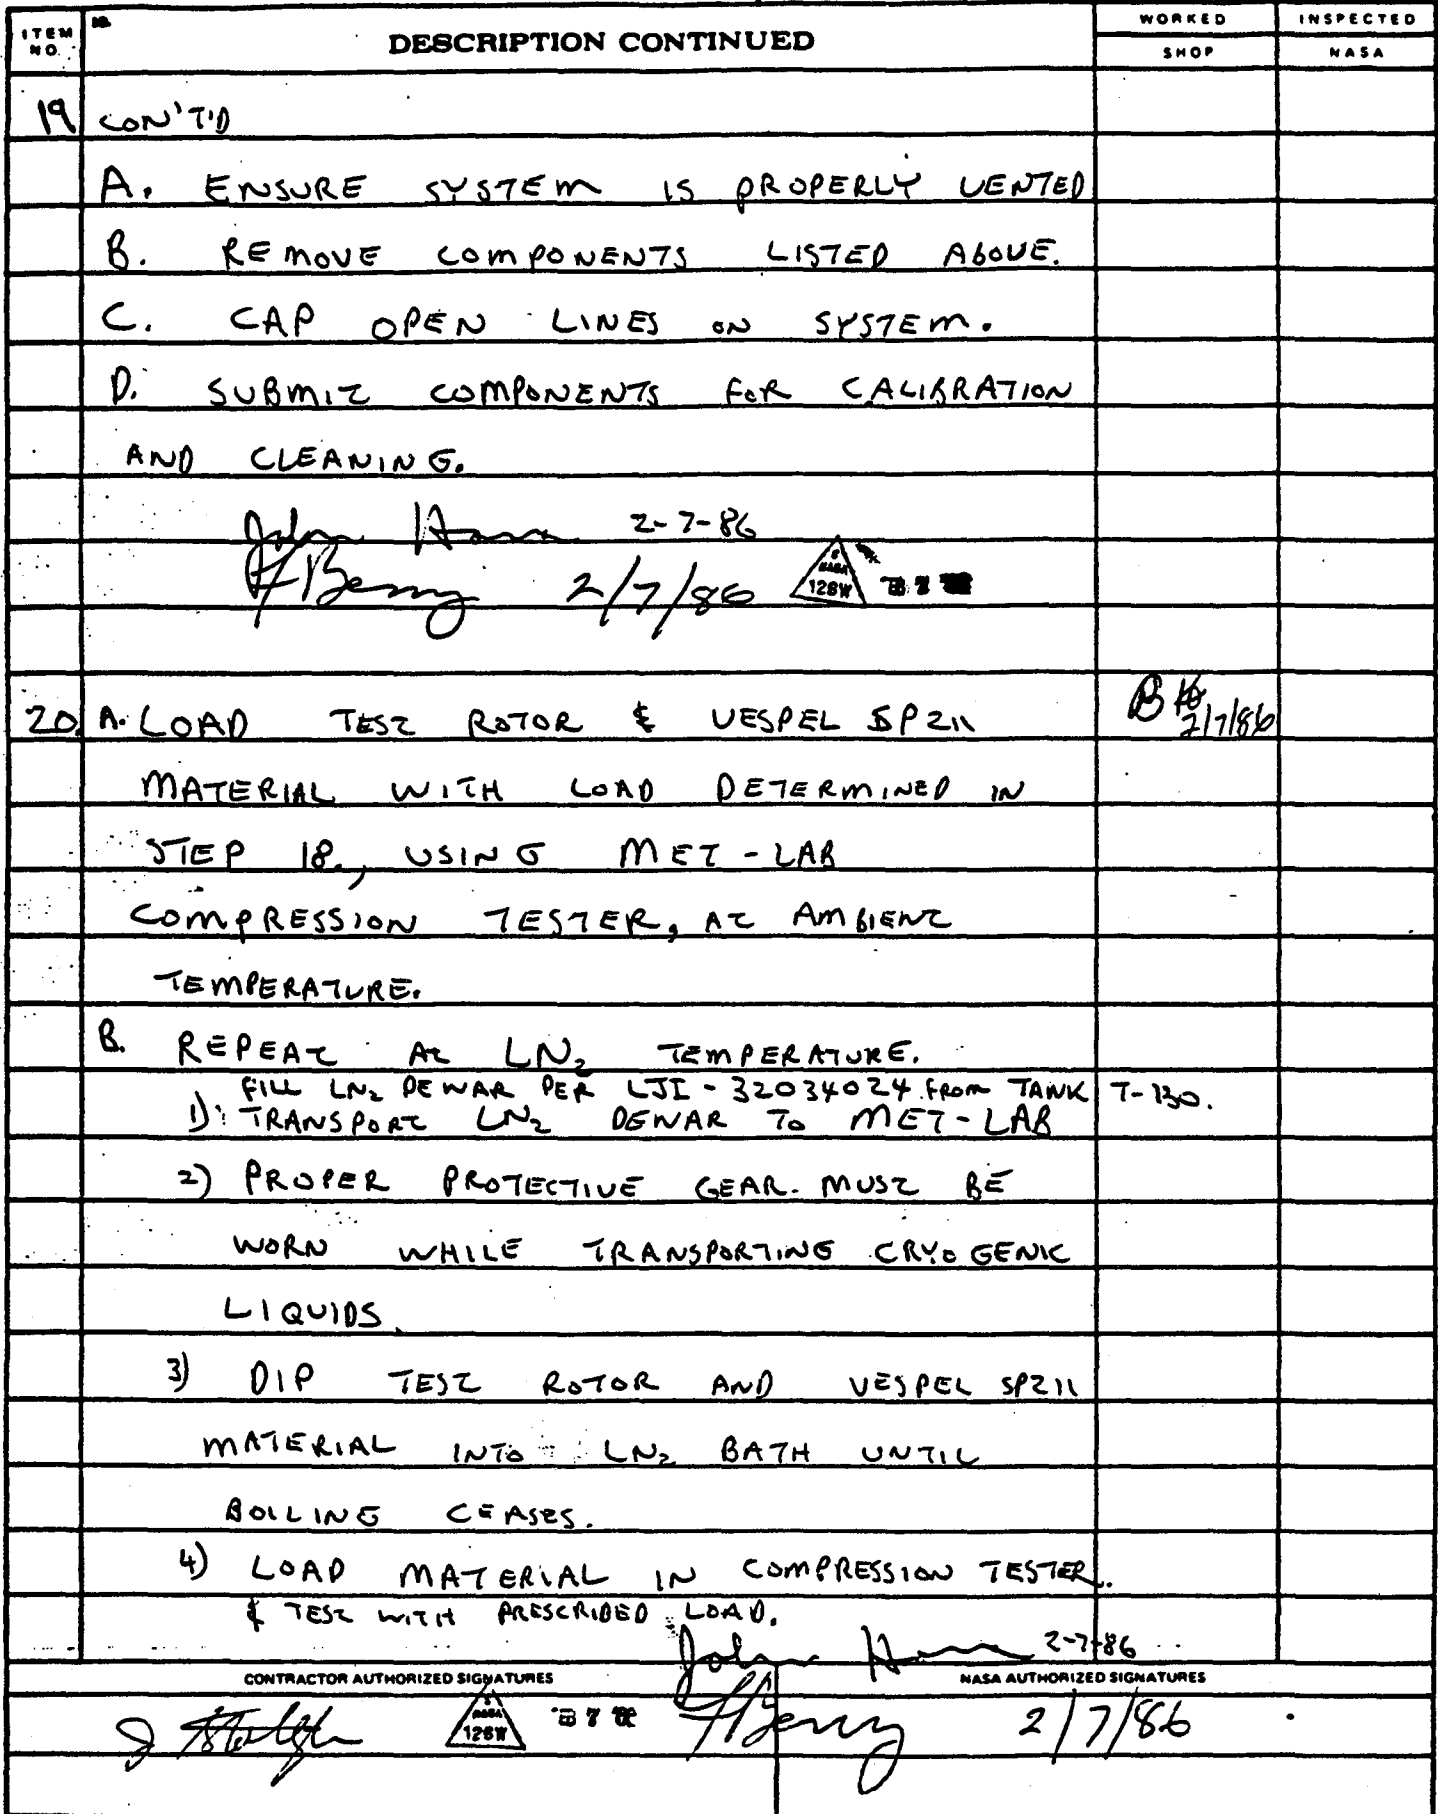 ITEM NO. 18. DESCRIPTION CONTINUED WORKED INSPECTED
SHOP NASA
19 CON'T'D
A. ENSURE SYSTEM IS PROPERLY VENTED
B. REMOVE COMPONENTS LISTED ABOVE.
C. CAP OPEN LINES ON SYSTEM.
D. SUBMIT COMPONENTS FOR CALIBRATION
AND CLEANING.
John 2-7-86
F Berry 2/7/86 NASA 126W
20. A. LOAD TEST ROTOR & VESPEL SP211 2/7/86
MATERIAL WITH LOAD DETERMINED IN
STEP 18., USING MET-LAB
COMPRESSION TESTER, AT AMBIENT
TEMPERATURE.
B. REPEAT AT LN2 TEMPERATURE.
FILL LN2 DEWAR PER LJI-32034024 FROM TANK T-130.
1) TRANSPORT LN2 DEWAR TO MET-LAB
2) PROPER PROTECTIVE GEAR. MUST BE
WORN WHILE TRANSPORTING CRYOGENIC
LIQUIDS.
3) DIP TEST ROTOR AND VESPEL SP211
MATERIAL INTO LN2 BATH UNTIL
BOILING CEASES.
4) LOAD MATERIAL IN COMPRESSION TESTER.
& TEST WITH PRESCRIBED LOAD.
John 2-7-86
CONTRACTOR AUTHORIZED SIGNATURES NASA AUTHORIZED SIGNATURES
NASA 126W F Berry 2/7/86